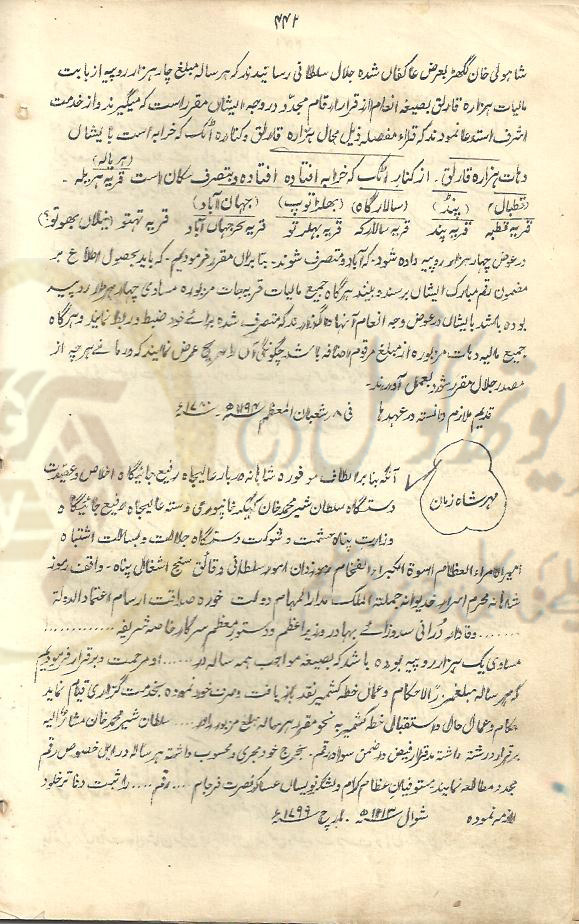 ۴۴۲
شاہولی خان گکھڑ بعرض عاکفان سدہ جلال سلطانی رسانیدند کہ ہر سالہ مبلغ چار ہزار روپیہ از بابت
مالیات ہزارہ قارلق بصیغہ انعام از قرار ارقام مجدد در وجہ ایشاں مقرر است کہ میگیرند و از خدمت
اشرف استدعا نمودند کہ قراء مفصلہ ذیل محال ہزارہ قارلق و کنارہ اٹک کہ خرابہ است بایشاں
(ہریالہ)
دہات ہزارہ قارلق۔ از کنار اٹک کہ خرابہ افتادہ افتادہ و بتصرف سکان است قریہ ہریلہ۔
(قطبال) (پنڈ) (سالارگاہ) (بھلڑ توپ) (جہان آباد)
قریہ قطبہ قریہ پند قریہ سالارکہ قریہ بہلر تو قریہ جہان آباد قریہ تہتو
در عوض چہار ہزار روپیہ دادہ شود۔ کہ آباد و متصرف شوند۔ بنا براں مقرر فرمودیم۔ کہ باید بحصول اطلاع بر
مضمون رقم مبارک ایشاں برسند و بیند ہرگاہ جمیع مالیات قریہ جات مزبورہ مساوی چہار ہزار روپیہ
بودہ باشد بایشاں در عوض وجہ انعام آنہا واگذارند کہ متصرف شدہ برائے خود ضبط و ربط نمایند و ہرگاہ
جمیع مالیہ دہات مزبورہ از مبلغ مرقوم اضافہ باشد چگونگی آں را عرض نمایند کہ در ثانی ہرچہ از
مصدر جلال مقرر شود بعمل آورند۔
قدیم ملازم دانستہ در عہدہا فی ۸ شعبان المعظم ۱۱۹۴ھ ۱۷۸۰ء
مہر شاہ زمان
آنکہ بنا بر الطاف موفورہ شاہانہ دربارہ عالیجاہ رفیع جائیگاہ اخلاص و عقیدت
دستگاہ سلطان شیر محمد خان عالیجاہ رفیع جائیگاہ
وزارت پناہ حشمت و شوکت دستگاہ جلالت و بسالت اشتباہ
امیر الامراء العظام اسوۃ الکبراء الفخام رموزدان امور سلطانی دقائق سنج اشغال پناہ۔ واقف رموز
شاہانہ محرم اسرار خدیوانہ جملۃ الملک مدار المہام دولت صداقت ارسام اعتماد الدولہ
......وفادار درانی سدوزائے بہادر وزیر اعظم و دستور معظم سرکار خاصہ شریفہ............
مساوی یک ہزار روپیہ بودہ باشد کہ بصیغہ مواجب ہمہ سالہ در......او مرحمت و برقرار فرمودیم
کہ ہر سالہ مبلغ الاحکام و عمال خطہ کشمیر نقد بازیافت و صرف خود نمودہ بخدمت گزاری قیام نماید
حکام و عمال حال و استقبال خطہ کشمیر بنحو مقرر ہر سالہ مبلغ مزبور را در......سلطان شیر محمد خان مشار الیہ
برقرار دانستہ در ضمن سواد رقم۔ بخرج خود مجری و محسوب داشتہ ہر سالہ در ایں خصوص رقم
مجدد مطالعہ نمایند مستوفیان عظام کرام و لشکر نویسان عساکر نصرت فرجام....رقم....را ثبت دفاتر خلود
نمودہ شوال ۱۲۱۳ھ مارچ ۱۷۹۹ء